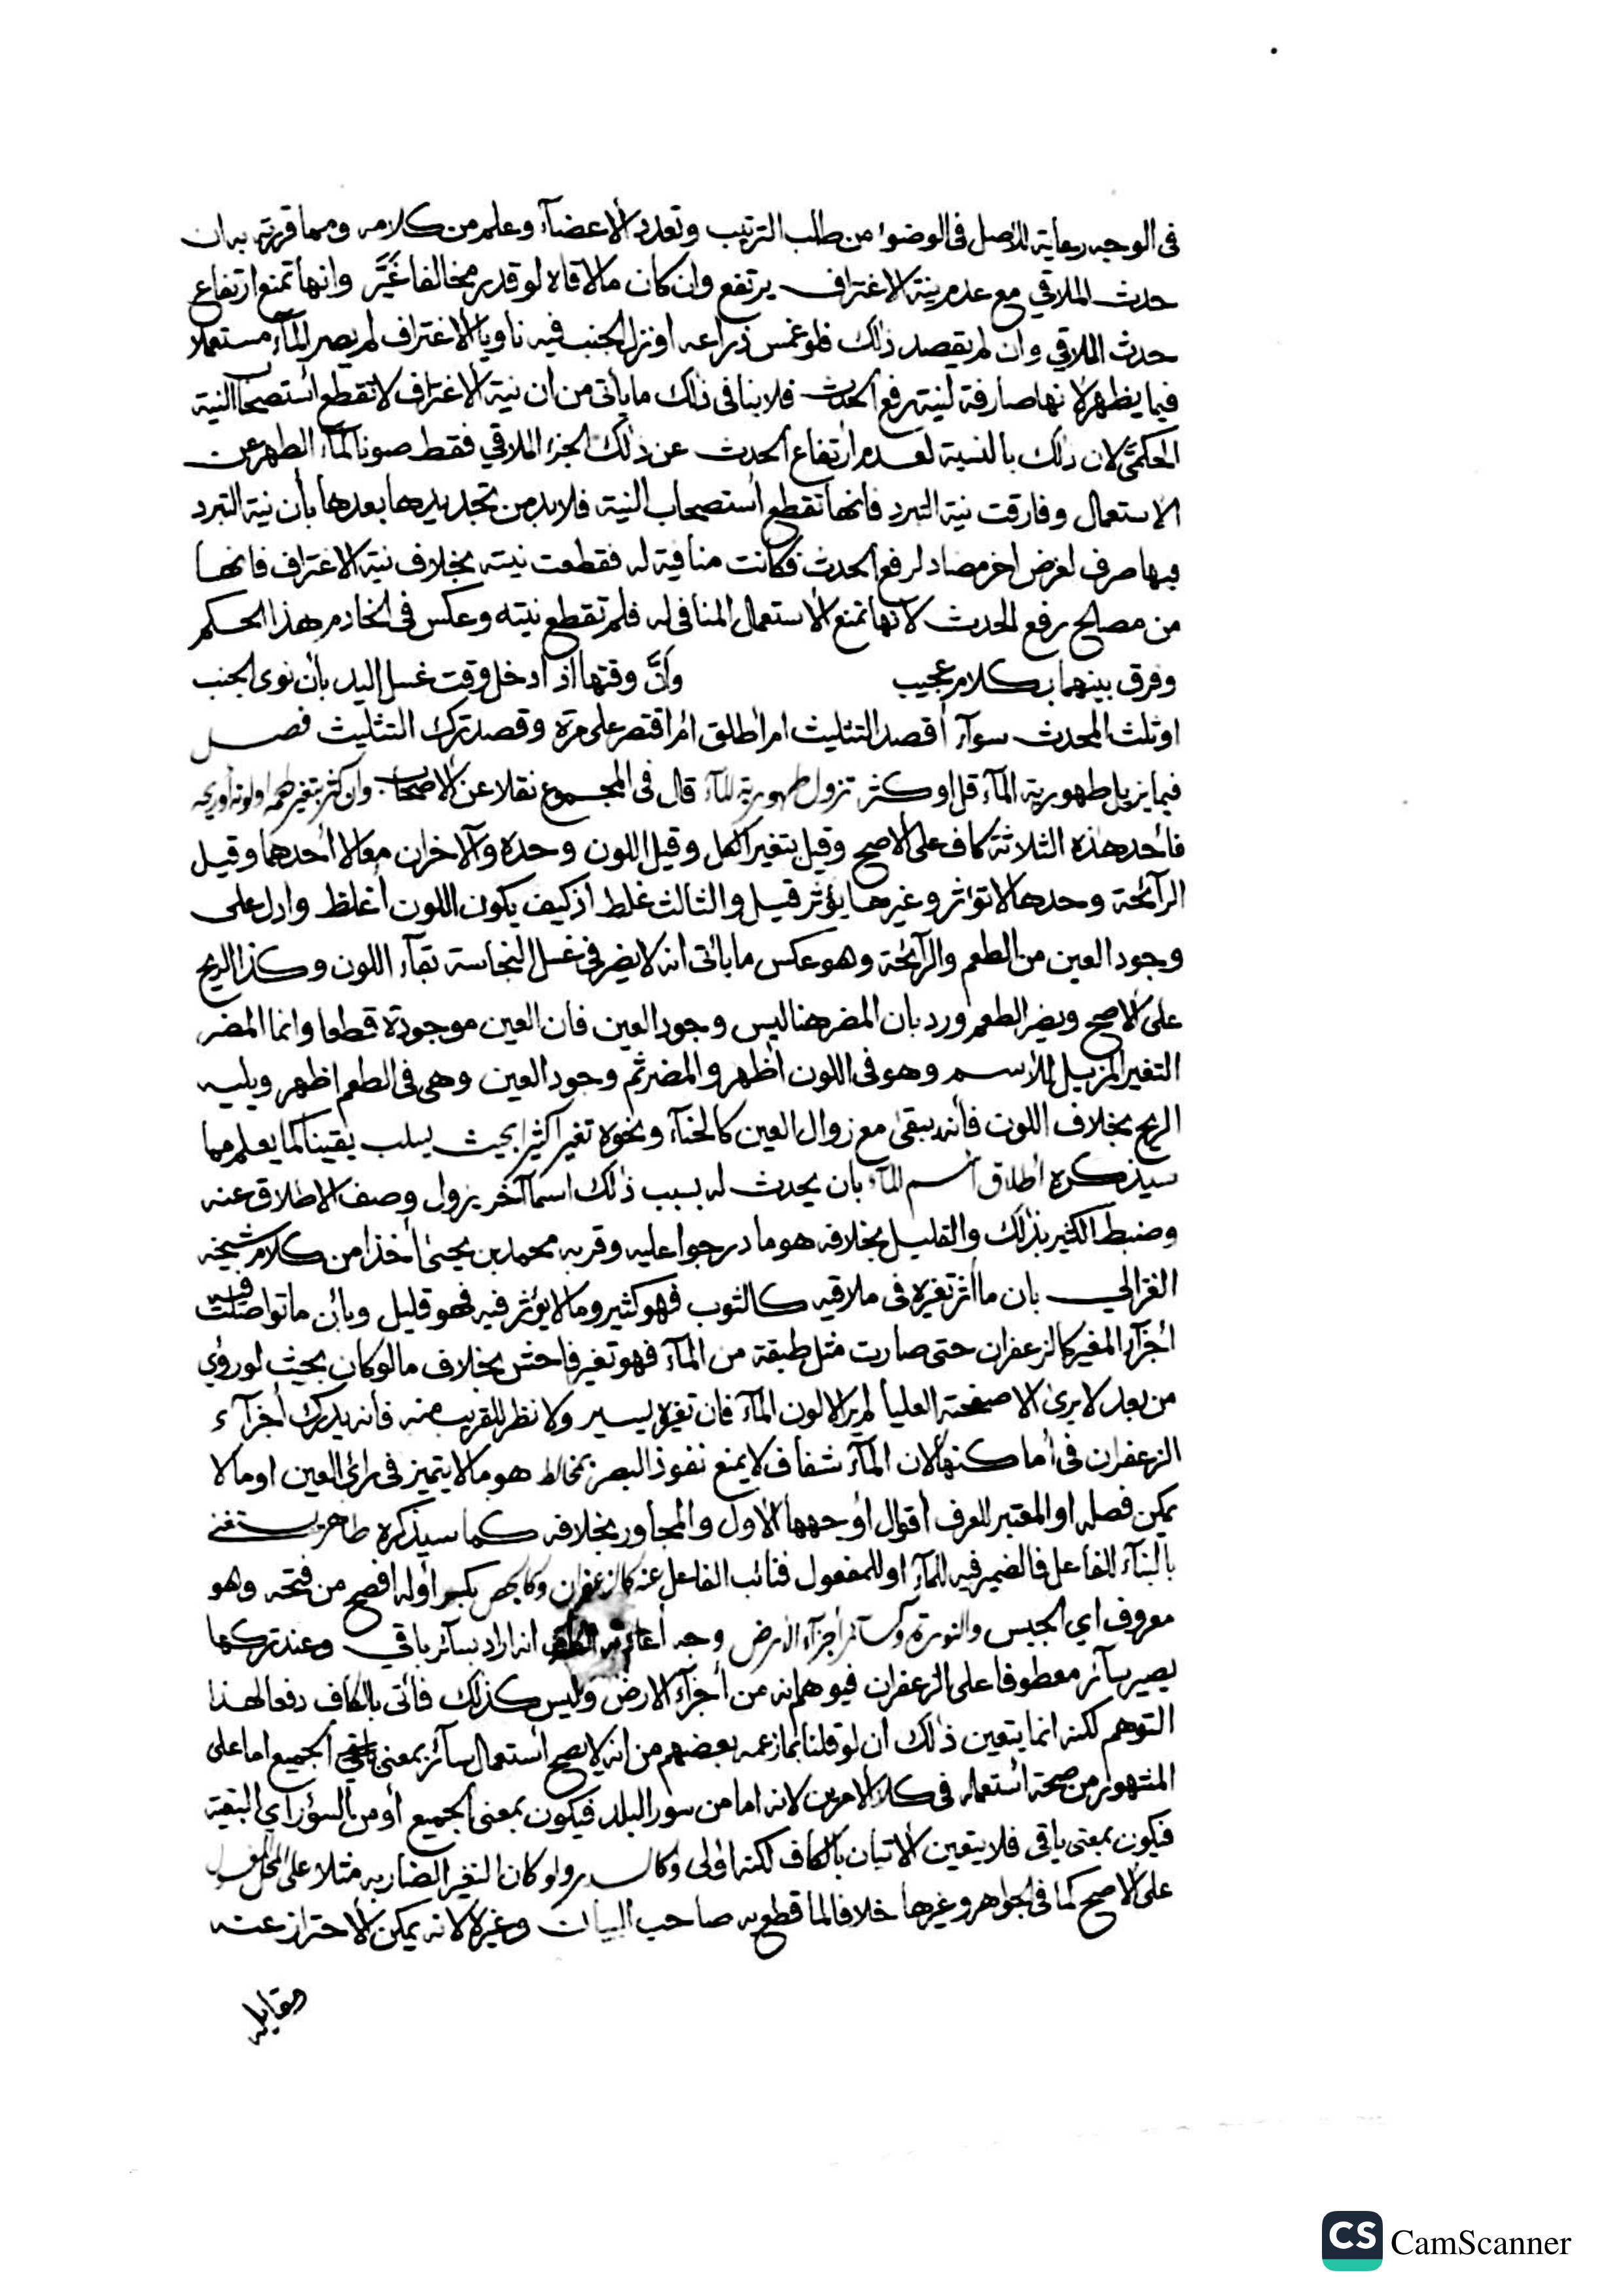 في الوجه رعاية للاصل في الوضوء من طلب الترتيب وتعدد الأعضآء وعلم من كلامه ومما قررته به ان
حدث الملاقي مع عدم نية الاغتراف يرتفع وان كان مالاقاه لو قدر مخالفا غَيَّر وانها تمنع ارتفاع
حدث الملاقي وان لم يقصد ذلك فلو غمس ذراعه او نزل الجنب فيه ناويا الاغتراف لم يصر المآء مستعملا
فيما يظهر لانها صارفة لنية رفع الحدث فلا ينافي ذلك ما يأتي من ان نية الاغتراف لا تقطع أستصحاب النية
الحكميَّ لان ذلك بالنسبة لعدم ارتفاع الحدث عن ذلك الجزء الملاقي فقط صونا للمآء الطهر عن
الاستعمال وفارقت نية التبرد فانها تقطع أستصحاب النية فلا بد من تجديدها بعدها بأن نية التبرد
فيها صرف لغرض اخر مضاد لرفع الحدث فكانت منافية له فقطعت نيته بخلاف نية الاغتراف فانها
من مصالح رفع الحدث لانها تمنع الاستعمال المنافي له فلم تقطع نيته وعكس في الخادم هذا الحكم
وفرق بينهما بكلام عجيب وأنَّ وقتها اذا أدخل وقت غسل اليد بأن نوى الجنب
او ثلث المحدث سوآء أقصد التثليث ام أطلق أم اقتصر على مرة وقصد ترك التثليث فصل
فيما يزيل طهورية المآء قل او كثر تزول طهورية المآء قال في المجموع نقلا عن الاصحاب وان كثر بتغير طعمه او لونه أو ريحه
فأحد هذه الثلاثة كاف على الاصح وقيل بتغير الكل وقيل اللون وحده والآخران معا لا أحدهما وقيل
الرآئحة وحدها لا تؤثر وغيرها يؤثر قيل والثالث غلط اذ كيف يكون اللون أغلظ وادل على
وجود العين من الطعم والرآئحة وهو عكس ما يأتي انه لا يضر في غسل النجاسة بقآء اللون وكذا الريح
على الاصح ويضر الطعم ورد بان المضر هنا ليس وجود العين فان العين موجودة قطعا وانما المضر
التغير المزيل للأسم وهو في اللون أظهر والمضر ثم وجود العين وهي في الطعم اظهر ويليه
الريح بخلاف اللون فأنه يبقى مع زوال العين كالحنآء ونحوه تغيرا كثيرا بحيث يسلب يقينا كما يعلم مما
سيذكره اطلاق أسم المآء بان يحدث له بسبب ذلك اسما آخر يزول وصف الاطلاق عنه
وضبط الكثير بذلك والقليل بخلافه هو ما درجوا عليه وقربه محمد بن يحيى أخذا من كلام شيخه
الغزالي بان ما أثر تغيره في ملاقيه كالثوب فهو كثير وما لا يؤثر فيه فهو قليل وبأن ما تواصلت فيه
أجزآء المغير كالزعفران حتى صارت مثل طبقة من المآء فهو تغير فاحش بخلاف ما لو كان بحيث لو رؤي
من بعد لا يرى الا صفحته العليا لم ير الا لون المآء فان تغيره يسير ولا نظر للقريب منه فأنه يدرك أجزآء
الزعفران في أماكنها لان المآء شفاف لا يمنع نفوذ البصر بمخالط هو ما لا يتميز في رأي العين او ما لا
يمكن فصله او المعتبر العرف أقوال أوجهها الأول والمجاور بخلافه كما سيذكره طاهر يستغنى
بالبنآء للفاعل فالضمير فيه للمآء او للمفعول فنائب الفاعل عنه كالزعفران وكالجص بكسر أوله افصح من فتحه وهو
معروف اي الجبس والنورة وكسآئر أجزآء الارض وجه أعادته الكاف انه اراد بسآئر باقي وعند تركها
يصير سآئر معطوفا على الزعفران فيوهم انه من أجزآء الارض وليس كذلك فأتى بالكاف دفعا لهذا
التوهم لكنه انما يتعين ذلك أن لو قلنا بما زعمه بعضهم من انه لا يصح أستعمال سآئر بمعنى الجميع اما على
المشهور من صحة أستعماله في كلا الامرين لانه اما من سور البلد فيكون بمعنى الجميع أو من السؤر اي البقية
فيكون بمعنى باقي فلا يتعين الاتيان بالكاف لكنه اولى وكالسدر ولو كان التغير الضار به مثلا على المحل المغسول
على الاصح كما في الجواهر وغيرها خلافا لما قطع به صاحب البيان وغيره لانه يمكن الاحتراز عنه
مقابله
CS CamScanner